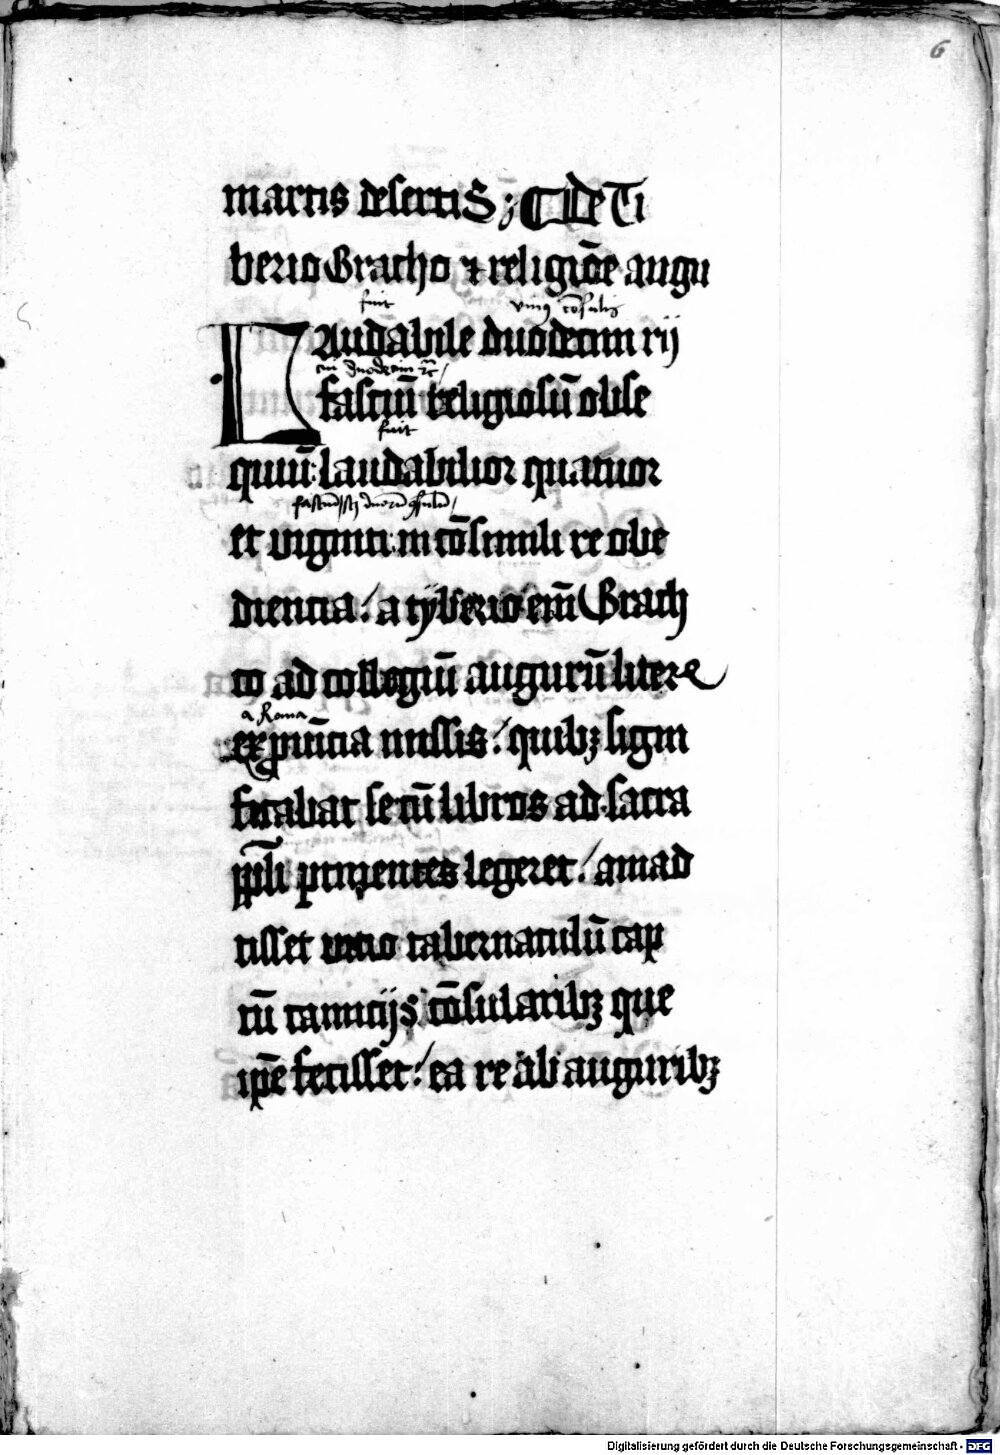 6
martis desertiS ; De Ti
berio Gracho ⁊ religiōe augu
fuit vniꝯ cōsulis
LAudabile duodecim xij
cui duodecim ⁊c̄ /
fasciū religiosū obse
fuit
quiū: laudabilior quatuor
fasciū duorū ꝯsulū /
et viginti in cōsimili re obe
diencia / a tyberio em̄ Grach
co ad collogiū augurū litere
a Roma
ex ꝓuīcia missis / quibꝫ signi
ficabat se cū libros ad sacra
pp̄li ꝑtinentes legeret / aīad
tisset vicio tabernaculū cap
tū comicijs cōsularibꝫ que
ip̄e fecisset / ea re ab auguribꝫ
Digitalisierung gefördert durch die Deutsche Forschungsgemeinschaft - DFG